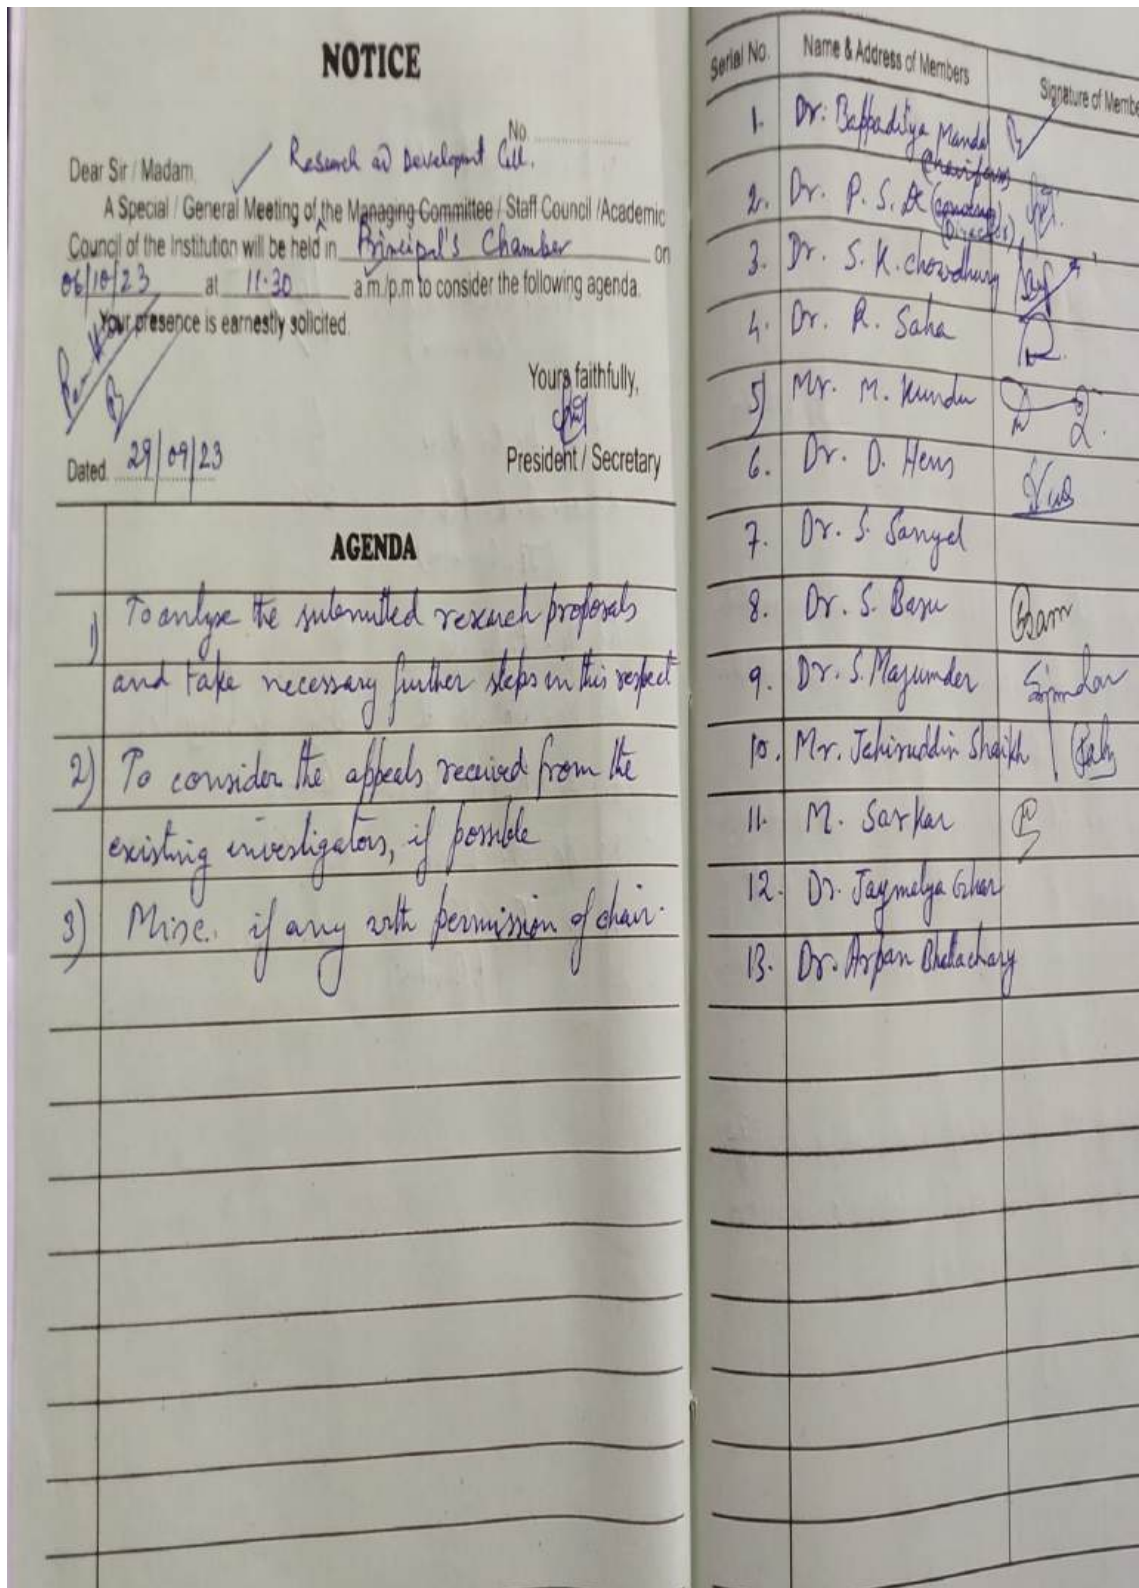 NOTICE
No.
Research and Development Cell.
Dear Sir / Madam,
A Special / General Meeting of the Managing Committee / Staff Council /Academic
Council of the Institution will be held in Principal's Chamber on
06/10/23 at 11.30 a.m./p.m to consider the following agenda.
Your presence is earnestly solicited.
Yours faithfully,
President / Secretary
Dated. 29/09/23
AGENDA
1) To anlyse the submitted research proposals
and take necessary further steps in this respect
2) To consider the appeals received from the
existing investigators, if possible
3) Misc. if any with permission of chair.
Serial No. Name & Address of Members Signature of Membe
1. Dr. Bappaditya Mandal
(Chairperson)
2. Dr. P. S.
3. Dr. S. K. Chowdhury
4. Dr. R. Saha
5) Mr. M. Kundu
6. Dr. D. Hens
7. Dr. S. Sanyal
8. Dr. S. Basu
9. Dr. S. Majumder
10. Mr. Jahiruddin Shaikh
11. M. Sarkar
12. Dr. Jaymalya Ghar
13. Dr. Arpan Bhattachary